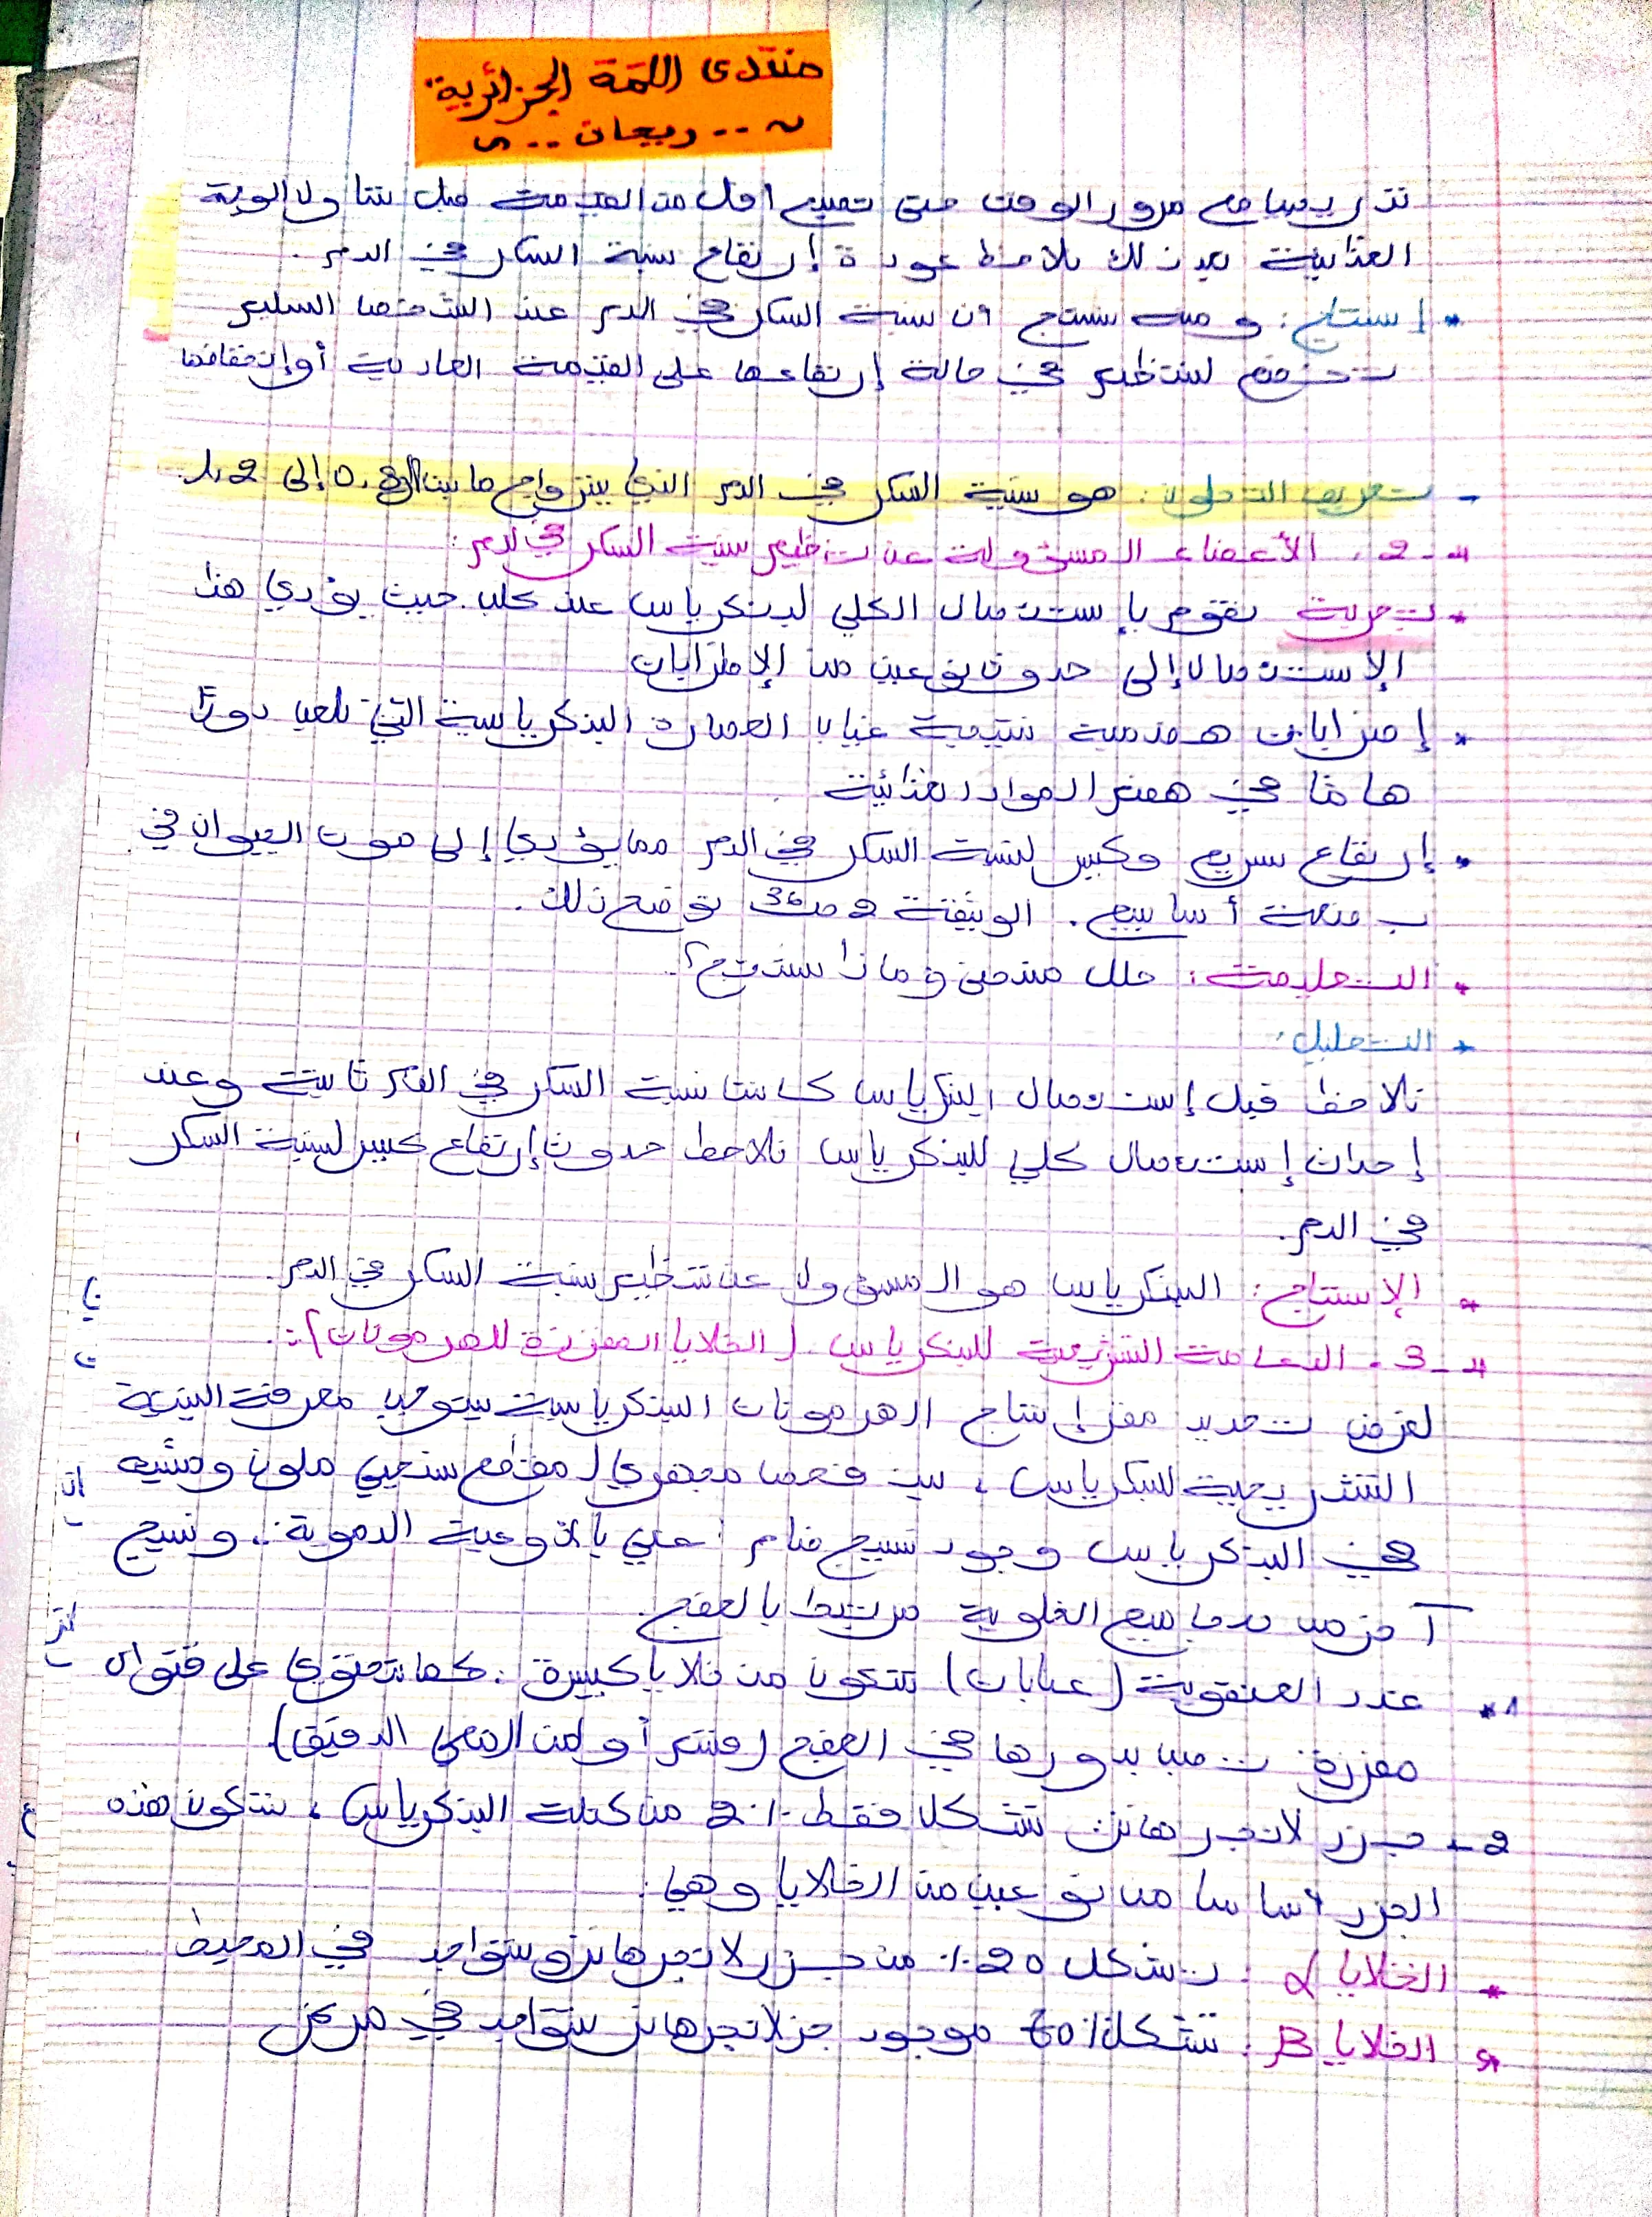 منتدى اللمة الجزائرية
~ .. ريحان .. ~
تدريجيا مع مرور الوقت حتى تصبح أقل من القيمة قبل تناول الوجبة
الغذائية بعد ذلك نلاحظ عودة إرتفاع نسبة السكر في الدم.
* إستنتاج: و منه نستنتج أن نسبة السكر في الدم عند الشخص السليم
تخضع لتنظيم في حالة إرتفاعها على القيمة العادية أو إنخفاضها
- تعريف التحلون: هو نسبة السكر في الدم الذي يتراوح ما بين 0.8 إلى 1.2
4-2. الأعضاء المسؤولة عن تنظيم نسبة السكر في الدم:
* تجربة نقوم بإستئصال الكلي لبنكرياس عند كلب. حيث يؤدي هذا
الإستئصال إلى حدوث نوعين من الإضرابات
* إضرابات هضمية نتيجة غياب العصارة البنكرياسية التي تلعب دورًا
هامًا في هضم المواد الغذائية
* إرتفاع سريع وكبير لنسبة السكر في الدم مما يؤدي إلى موت الحيوان في
بضعة أسابيع. الوثيقة 2 ص 36 توضح ذلك.
* التعليمة: حلل منحنى و ماذا تستنتج؟
* التحليل:
نلاحظ قبل إستئصال البنكرياس كانت نسبة السكر في الدم ثابتة وعند
إحداث إستئصال كلي للبنكرياس نلاحظ حدوث إرتفاع كبير لنسبة السكر
في الدم.
* الإستنتاج: البنكرياس هو المسؤول عن تنظيم نسبة السكر في الدم.
4-3. الدعامة التشريحية للبنكرياس. (الخلايا المفرزة للهرمونات):
لغرض تحديد مقر إنتاج الهرمونات البنكرياسية يتوجب معرفة البنية
التشريحية للبنكرياس، بين فحص مجهري لمقطع نسيجي ملون ومثبت
في البنكرياس وجود نسيج ضام غني بالأوعية الدموية.. ونسيج
آخر من مجاميع الخلوية مرتبط بالعفج.
1* غدد العنقودية (عنابات) تتكون من خلايا كبيرة. كما تحتوي على قنوات
مفرزة تصب بدورها في العفج (قسم أول من المعي الدقيق)
2- جزر لانجرهانز تشكل فقط 2٪ من كتلة البنكرياس، تتكون هذه
الجزر أساسا من نوعين من الخلايا وهي:
* الخلايا α: تشكل 20٪ من جزر لانجرهانز وتتواجد في المحيط
* الخلايا β: تشكل 70٪ موجود جزر لانجرهانز تتواجد في مركز